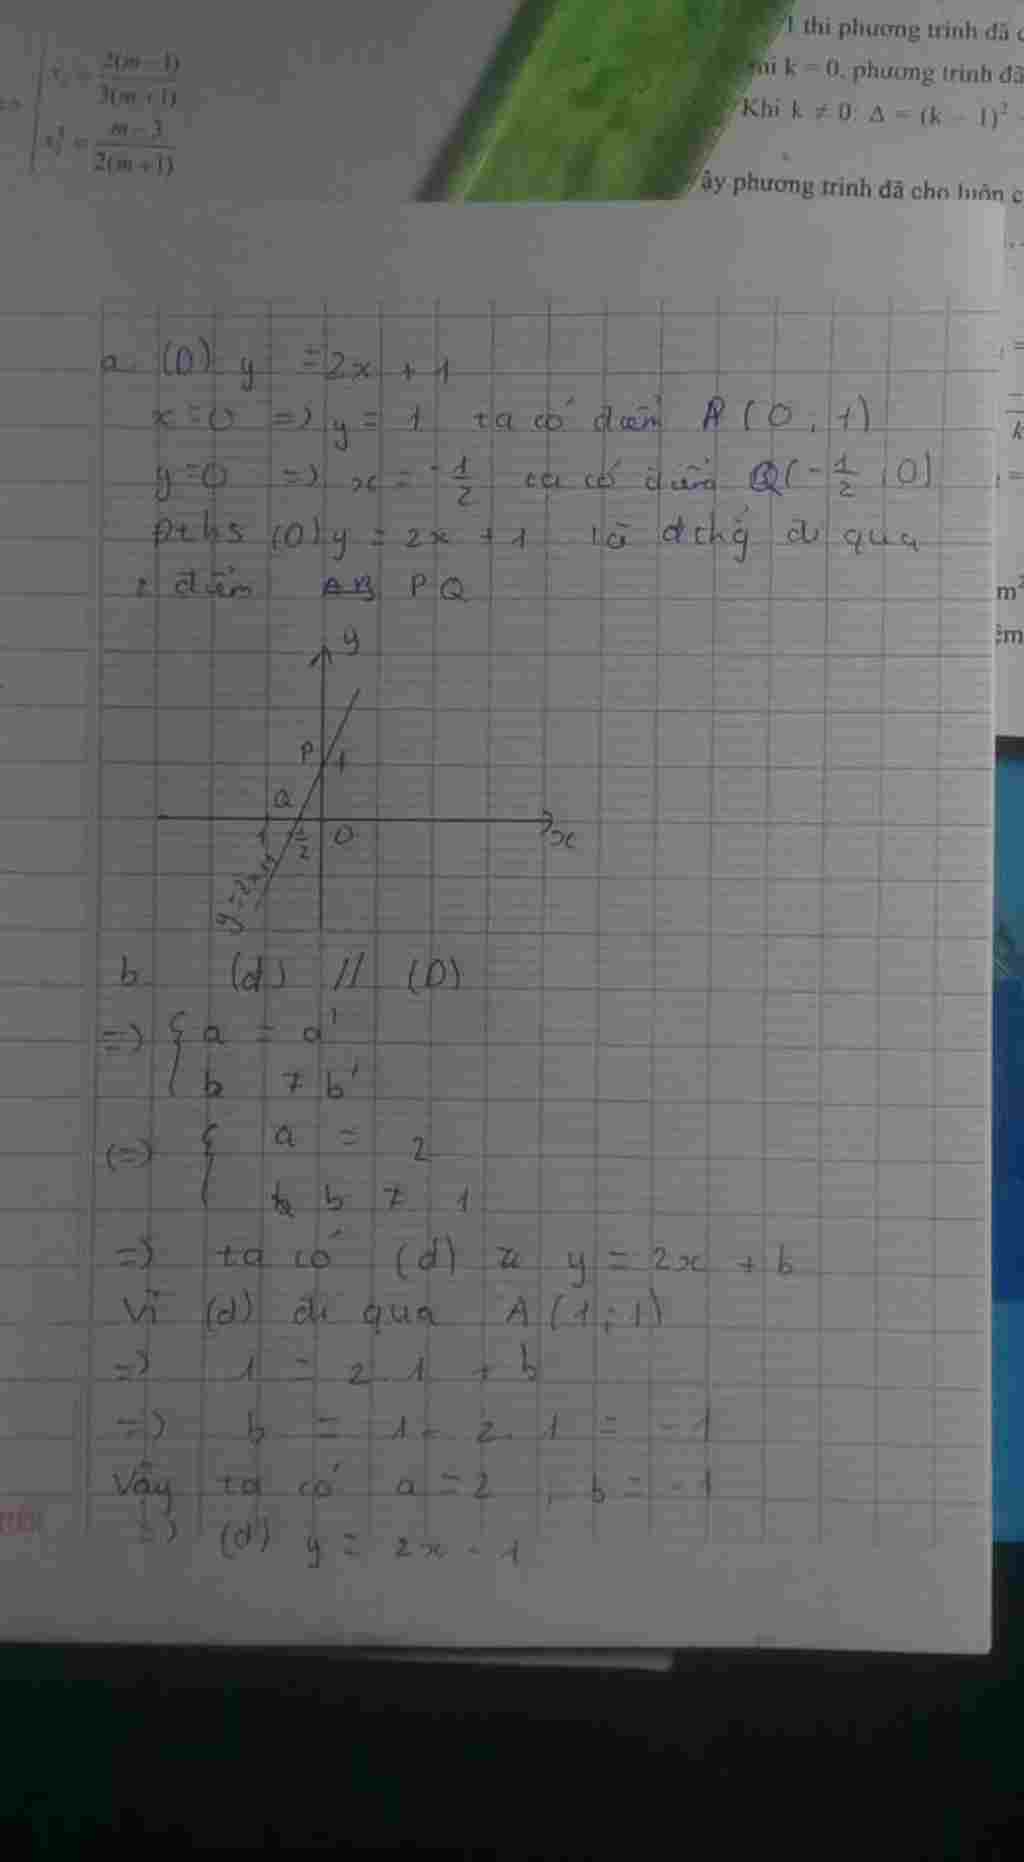 x₁ = 2(m-1)/3(m+1)
m-3/2(m+1)
1 thì phương trình đã
k = 0, phương trình đã
Khi k ≠ 0: Δ = (k - 1)²
ậy phương trình đã cho luôn c
a. (D) y = 2x + 1
x = 0 => y = 1 ta có điểm P (0, 1)
y = 0 => x = -1/2 ta có điểm Q (-1/2, 0)
pths (D) y = 2x + 1 là đchg đi qua
2 điểm AB P Q
y
P 1
Q
1 1/2 O x
y = 2x+1
b. (d) // (D)
=> { a = a'
b ≠ b'
(=) { a = 2
b ≠ 1
=> ta có (d) y = 2x + b
Vì (d) đi qua A (1; 1)
=> 1 = 2.1 + b
=> b = 1 - 2.1 = -1
Vậy ta có a = 2, b = -1
=> (d) y = 2x - 1